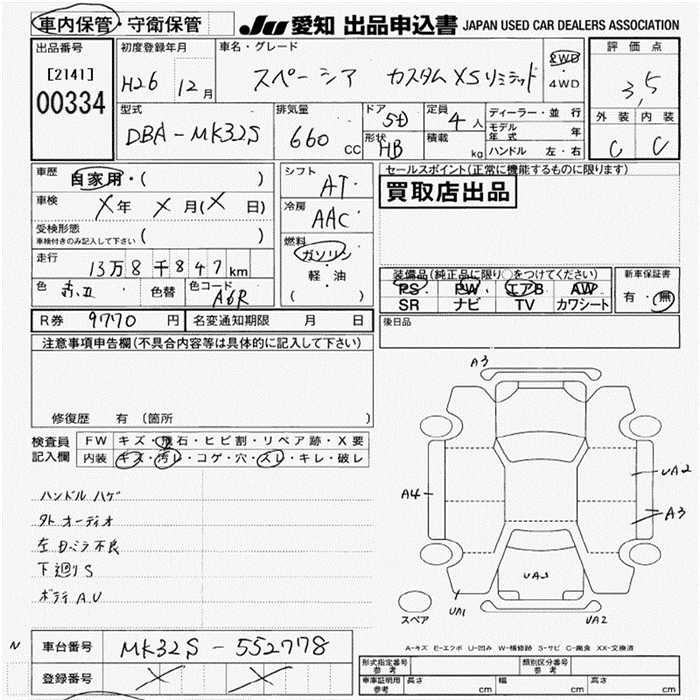 車内保管・守衛保管
JU 愛知 出品申込書 JAPAN USED CAR DEALERS ASSOCIATION
出品番号
[2141]
00334
初度登録年月
H26 12月
車名・グレード
スペーシア カスタムXSリミテッド
2WD
・
4WD
評価点
3.5
外装 内装
C C
型式
DBA-MK32S
排気量
660 CC
ドア
5D
形状
HB
定員
4人
積載
kg
ディーラー・並行
モデル年式 年
ハンドル 左・右
車歴
自家用・( )
車検
X年 X月(X日)
受検形態
車検付きのみ記入して下さい ( )
走行
13万8千847km
色 色替 色コード
A6R
シフト
AT
冷房
AAC
燃料
ガソリン
・
軽・油
( )
セールスポイント(正常に機能するものに限ります)
買取店出品
装備品(純正品に限り○をつけてください)
PS PW エアB AW
SR ナビ TV カワシート
新車保証書
有・無
後日品
R券 9770円 名変通知期限 月 日
注意事項申告欄(不具合内容等は具体的に記入して下さい)
修復歴 有 (箇所 )
検査員
記入欄
FW キズ・飛石・ヒビ割・リペア跡・X要
内装 キズ・汚レ・コゲ・穴・スレ・キレ・破レ
ハンドル ハゲ
外 オーディオ
左 ミラ不良
下廻りS
ボディA.U
A3
A4
UA2
A3
UA1
UA2
スペア
A-キズ E-エクボ U-凹み W-補修跡 S-サビ C-腐食 XX-交換済
N
車台番号 MK32S-552778
登録番号 X X
形式指定番号
参考
類別区分番号
参考
車庫証明用
参考
長さ cm 幅 cm 高さ cm